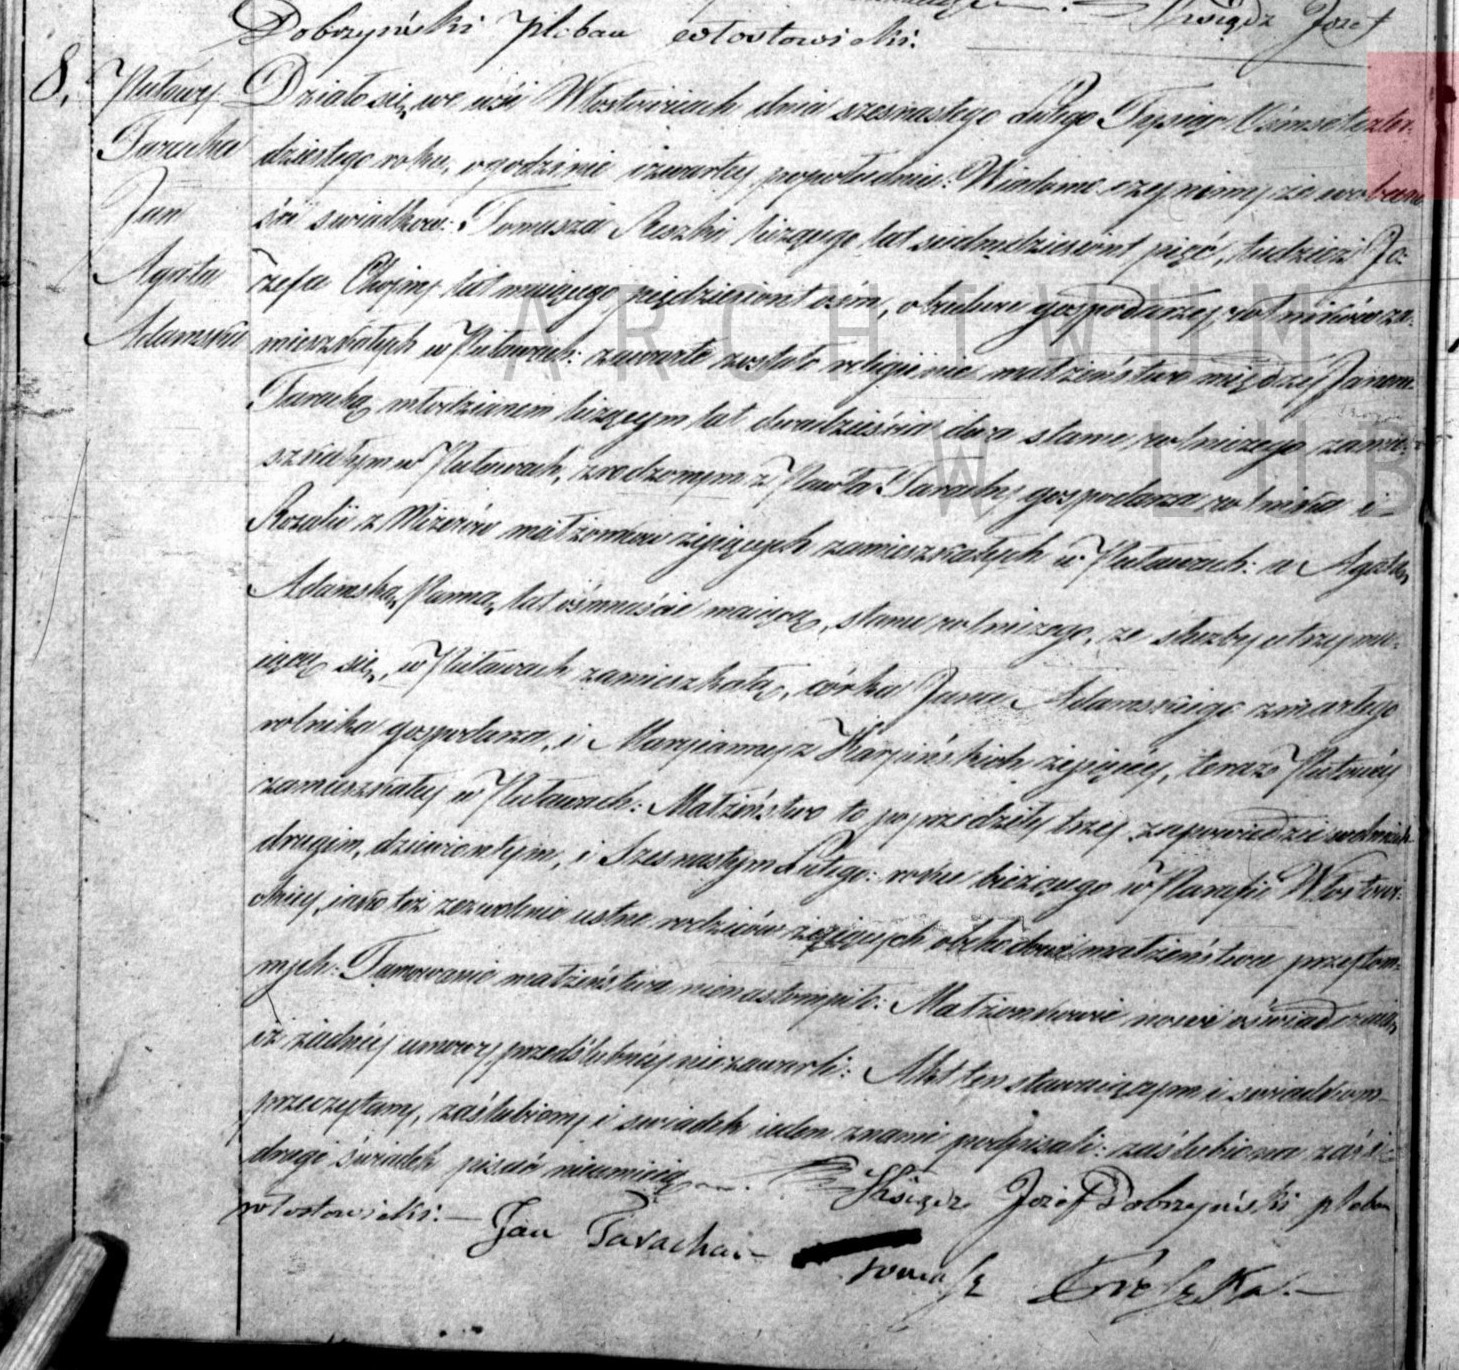 Dobrzyński Pleban włostowicki. Xsiądz Józef
8. Puławy Działo się we wsi Włostowicach dnia szesnastego Lutego Tysiąc Ośmset czter-
Taracha dziestego roku, o godzinie czwarty popołudniu: Wiadomo czyniemy że w obecno-
Jan ści swiadków: Tomasza Reszki liczącego lat siedmdziesiont pięć, tudzież Jó-
Agata zefa Choyny lat maiącego pięcdziesiont ośm, obudwu gospodarzy rolników za-
Adamska mieszkałych w Puławach: zawarte zostało religijnie małżeństwo między Janem
Tarachą młodzianem liczącym lat dwadzieścia dwa stanu rolniczego zamie-
szkałym w Puławach, zrodzonym z Pawła Tarachy gospodarza rolnika i
Rozalii z Mizerów małżonków żyjących zamieszkałych w Puławach: a Agatą
Adamską Panną, lat ośmnaście maiącą, stanu rolniczego, ze służby utrzymu-
iącą się, w Puławach zamieszkałą, córką Jana Adamskiego zmarłego
rolnika gospodarza, i Maryianny z Karpińskich żyjącéy, teraz
zamieszkałey w Puławach: Małżeństwo to poprzedziły trzy zapowiedzie w dniach
drugim, dziewiontym, i szesnastym Lutego: roku bieżącego w Parafii Włostowi-
ckiey, iako też zezwolenie ustne rodziców żyjących obchodowi małżeństwa przytom-
nych: Tamowanie małżeństwa nienastompiło: Małżonkowie nowi oświadczaią
iż żadnéy umowy przedślubnéy nie zawarli: Akt ten stawaiącym i swiadkom
przeczytany, zaślubiony i swiadek ieden znami podpisali: zaślubiona zaś i
drugi świadek pisać nieumieią. Xsiądz Józef Dobrzyński pleban
włostowicki. Jan Taracha Tomasz
ARCHIWUM
W LUB